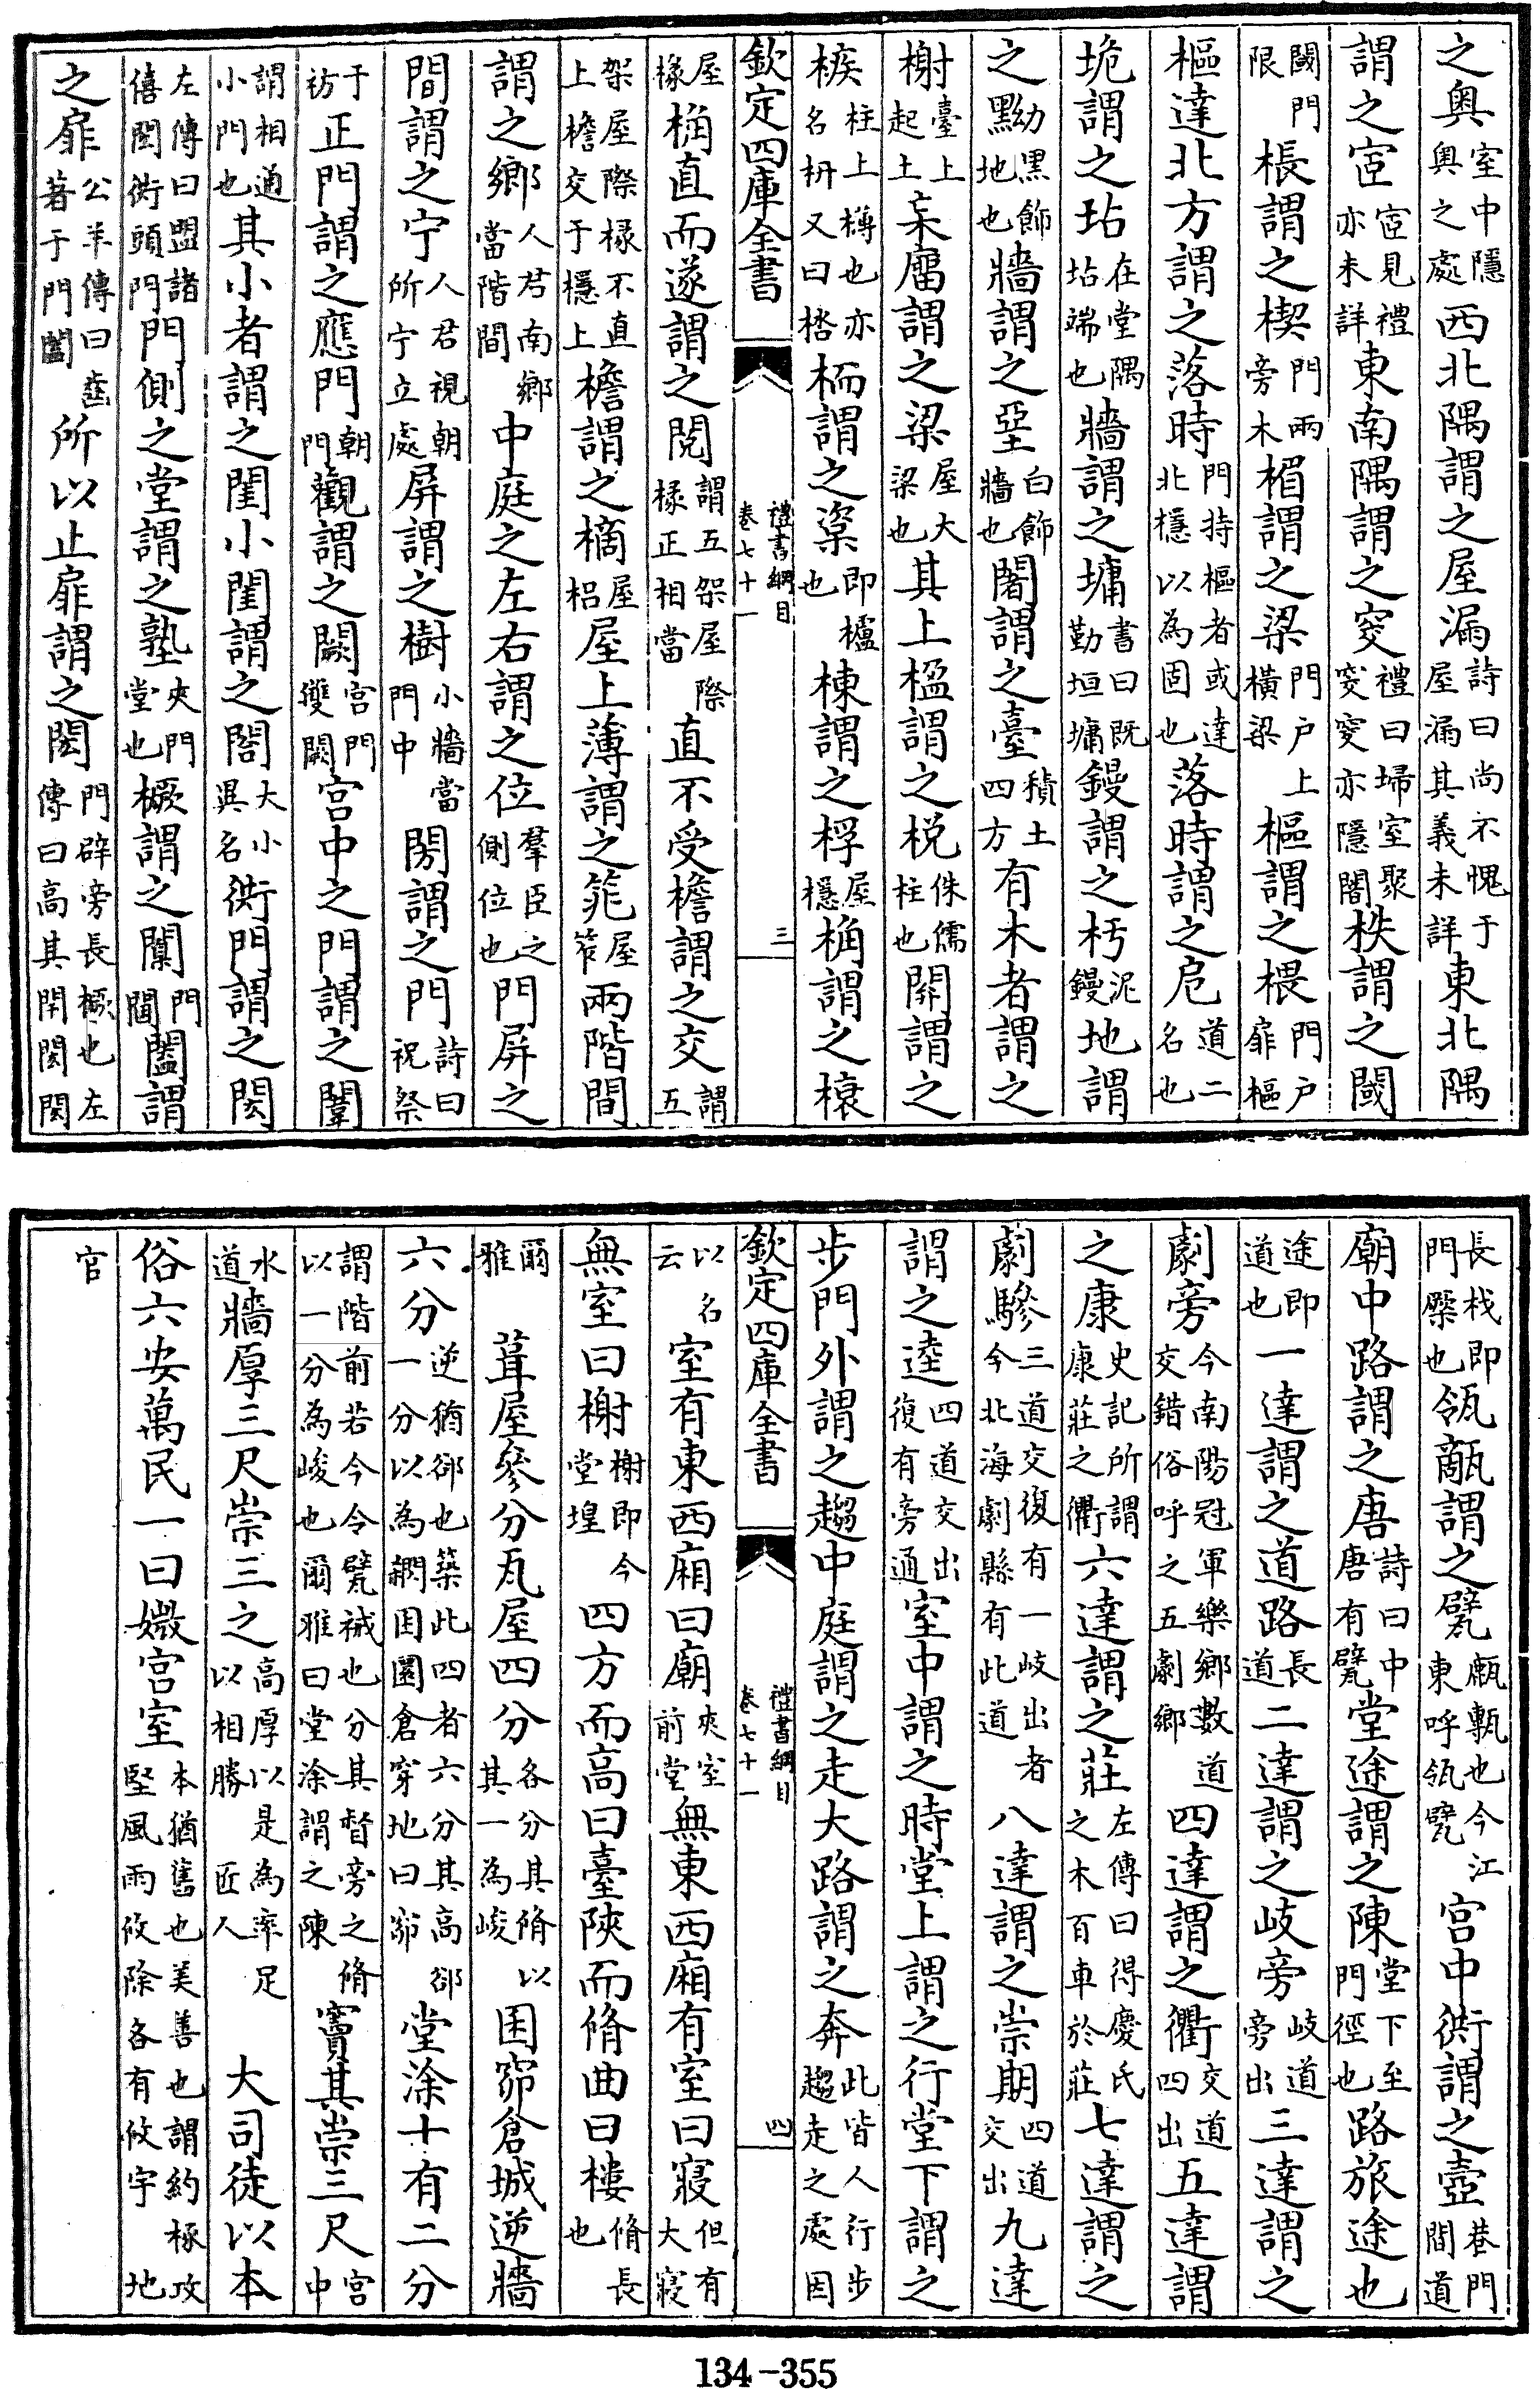 之奥室中隱奥之處西北隅謂之屋漏詩曰尚不愧于屋漏其義未詳東北隅
謂之宧宧見禮亦未詳東南隅謂之穾禮曰埽室聚穾穾亦隱闇柣謂之閾
閾門限棖謂之楔門兩旁木楣謂之梁門户上横梁樞謂之椳門户扉樞
樞達北方謂之落時門持樞者或達北檼以為固也落時謂之戹道二名也
垝謂之坫在堂隅坫端也牆謂之墉書曰既勤垣墉鏝謂之杇泥鏝地謂
之黝黑飾地也牆謂之堊白飾牆也闍謂之臺積土四方有木者謂之
榭臺上起土杗廇謂之梁屋大梁也其上楹謂之棁侏儒柱也閞謂之
槉柱上欂也亦名枅又曰㭼栭謂之楶即櫨也棟謂之桴屋檼桷謂之榱
欽定四庫全書 禮書綱目卷七十一 三
屋椽桷直而遂謂之閲謂五架屋際椽正相當直不受檐謂之交謂五
架屋際椽不直上檐交于檼上檐謂之樀屋梠屋上薄謂之筄屋笮兩階間
謂之鄉人君南鄉當階間中庭之左右謂之位羣臣之側位也門屏之
間謂之宁人君視朝所宁立處屏謂之樹小牆當門中閍謂之門詩曰祝祭
于祊正門謂之應門朝門觀謂之闕宫門雙闕宫中之門謂之闈
謂相通小門也其小者謂之閨小閨謂之閤大小異名衖門謂之閎
左傳曰盟諸僖閎衖頭門門側之堂謂之塾夾門堂也橛謂之闑門閫闔謂
之扉公羊傳曰齒著于門闔所以止扉謂之閎門辟旁長橛也左傳曰高其閈閎閎
長杙即門橜也瓴甋謂之甓㼾甎也今江東呼瓴甓宫中衖謂之壼巷門間道
廟中路謂之唐詩曰中唐有甓堂途謂之陳堂下至門徑也路旅途也
途即道也一達謂之道路長道二達謂之岐旁岐道旁出三達謂之
劇旁今南陽冠軍樂鄉數道交錯俗呼之五劇鄉四達謂之衢交道四出五達謂
之康史記所謂康莊之衢六達謂之莊左傳曰得慶氏之木百車於莊七達謂之
劇驂三道交復有一岐出者今北海劇縣有此道八達謂之崇期四道交出九達
謂之逵四道交出復有旁通室中謂之時堂上謂之行堂下謂之
步門外謂之趨中庭謂之走大路謂之奔此皆人行步趨走之處因
欽定四庫全書 禮書綱目卷七十一 四
以名云室有東西廂曰廟夾室前堂無東西廂有室曰寢但有大寢
無室曰榭榭即今堂堭四方而高曰臺陜而脩曲曰樓脩長也
爾雅葺屋參分瓦屋四分各分其脩以其一為峻囷窌倉城逆牆
六分逆猶郤也築此四者六分其高郤一分以為網囷圜倉穿地曰窌堂涂十有二分
謂階前若今令甓裓也分其督旁之脩以一分為峻也爾雅曰堂涂謂之陳竇其崇三尺宫中
水道牆厚三尺崇三之高厚以是為率足以相勝匠人大司徒以本
俗六安萬民一曰媺宫室本猶舊也美善也謂約椓攻堅風雨攸除各有攸宇地
官
134-355